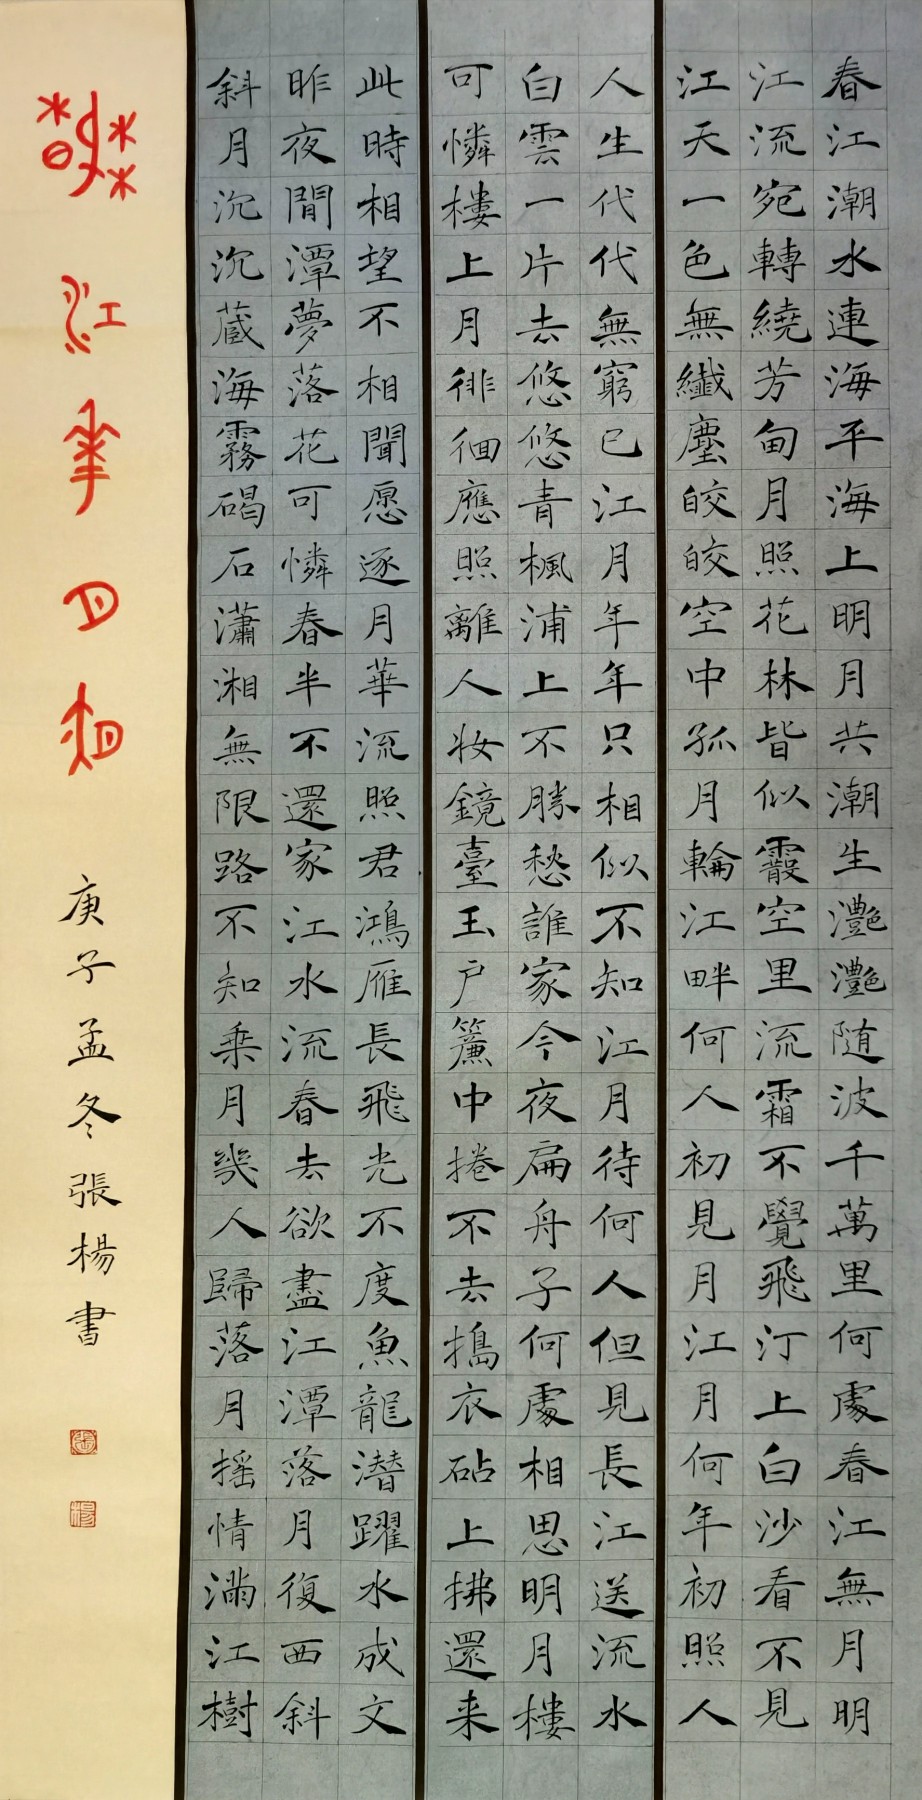 春江潮水連海平海上明月共潮生灩灩随波千萬里何處春江無月明
江流宛轉繞芳甸月照花林皆似霰空里流霜不覺飛汀上白沙看不見
江天一色無纖塵皎皎空中孤月輪江畔何人初見月江月何年初照人
人生代代無窮已江月年年只相似不知江月待何人但見長江送流水
白雲一片去悠悠青楓浦上不勝愁誰家今夜扁舟子何處相思明月樓
可憐樓上月徘徊應照離人妝鏡臺玉户簾中捲不去搗衣砧上拂還来
此時相望不相聞愿逐月華流照君鴻雁長飛光不度魚龍潜躍水成文
昨夜閒潭夢落花可憐春半不還家江水流春去欲盡江潭落月復西斜
斜月沉沉藏海霧碣石瀟湘無限路不知乗月幾人歸落月摇情滿江樹
春江花月夜
庚子孟冬張楊書
張
楊